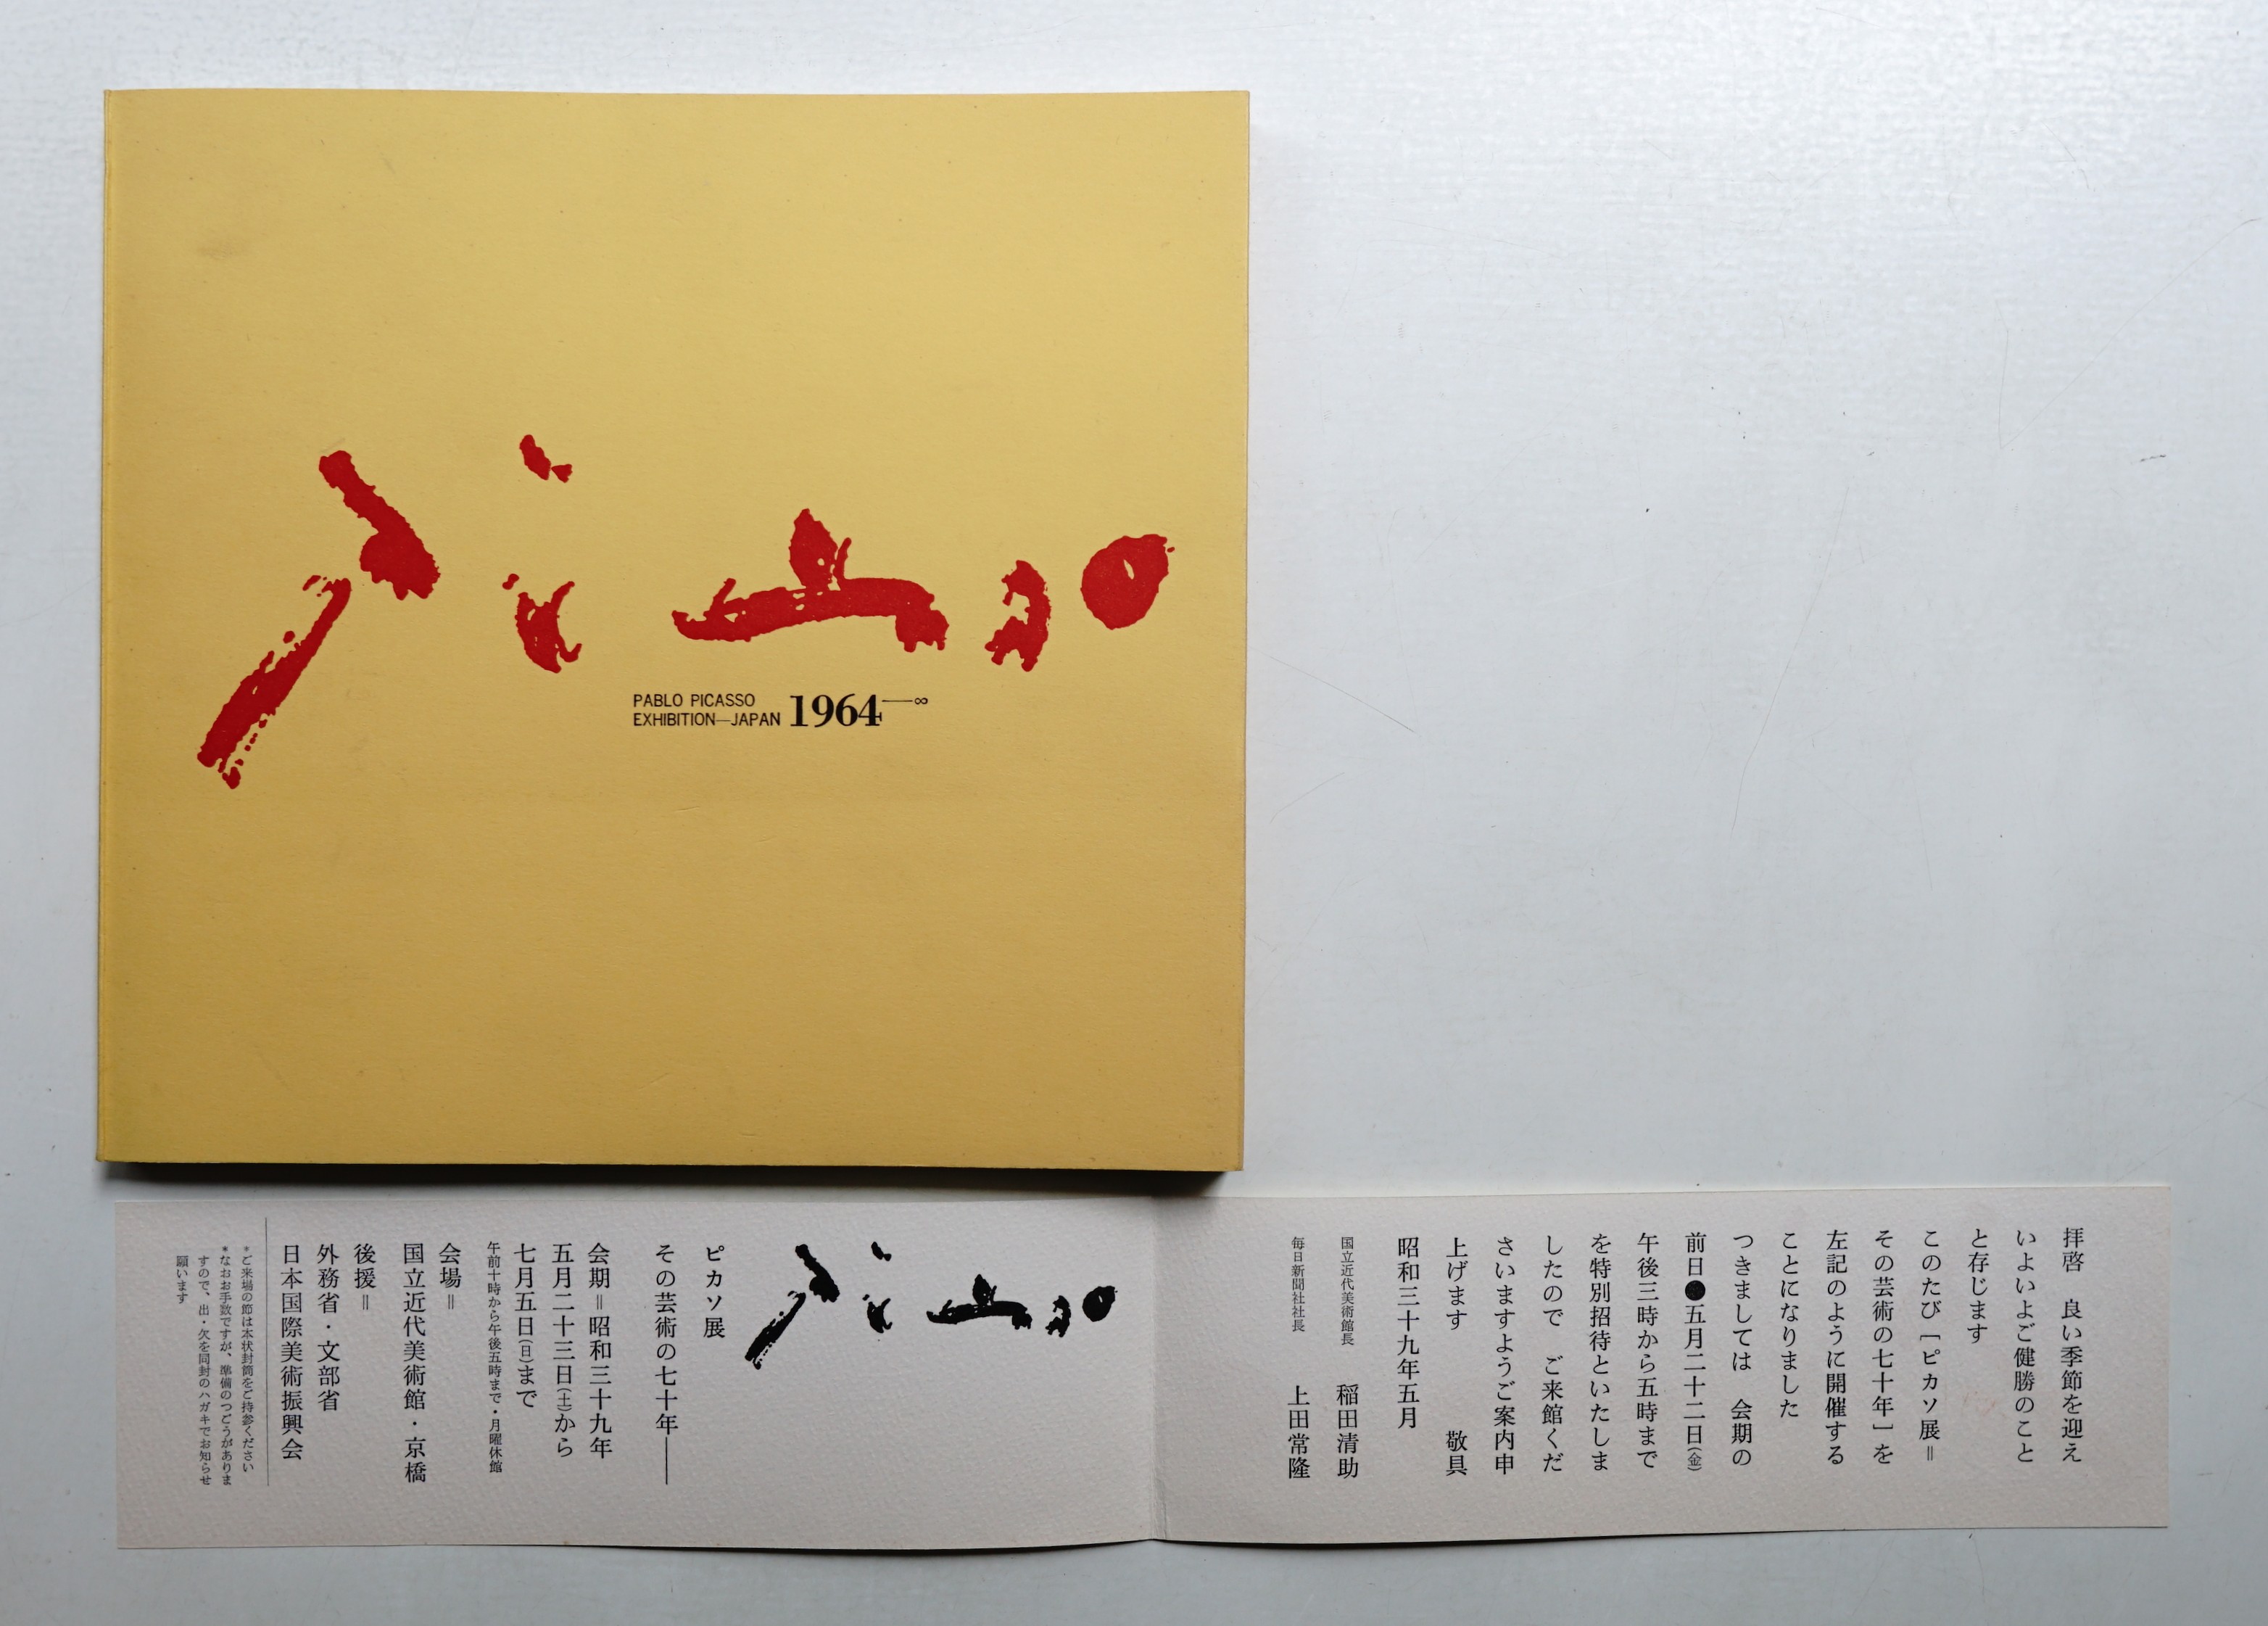 PABLO PICASSO
EXHIBITION—JAPAN 1964—∞
拝啓　良い季節を迎え
いよいよご健勝のこと
と存じます
このたび［ピカソ展＝
その芸術の七十年］を
左記のように開催する
ことになりました
つきましては　会期の
前日●五月二十二日(金)
午後三時から五時まで
を特別招待といたしま
したので　ご来館くだ
さいますようご案内申
上げます　敬具
昭和三十九年五月
国立近代美術館長　稲田清助
毎日新聞社社長　上田常隆
ピカソ展
その芸術の七十年——
会期＝昭和三十九年
五月二十三日(土)から
七月五日(日)まで
午前十時から午後五時まで・月曜休館
会場＝
国立近代美術館・京橋
後援＝
外務省・文部省
日本国際美術振興会
＊ご来場の節は本状封筒をご持参ください
＊なおお手数ですが、準備のつごうがありま
すので、出・欠を同封のハガキでお知らせ
願います